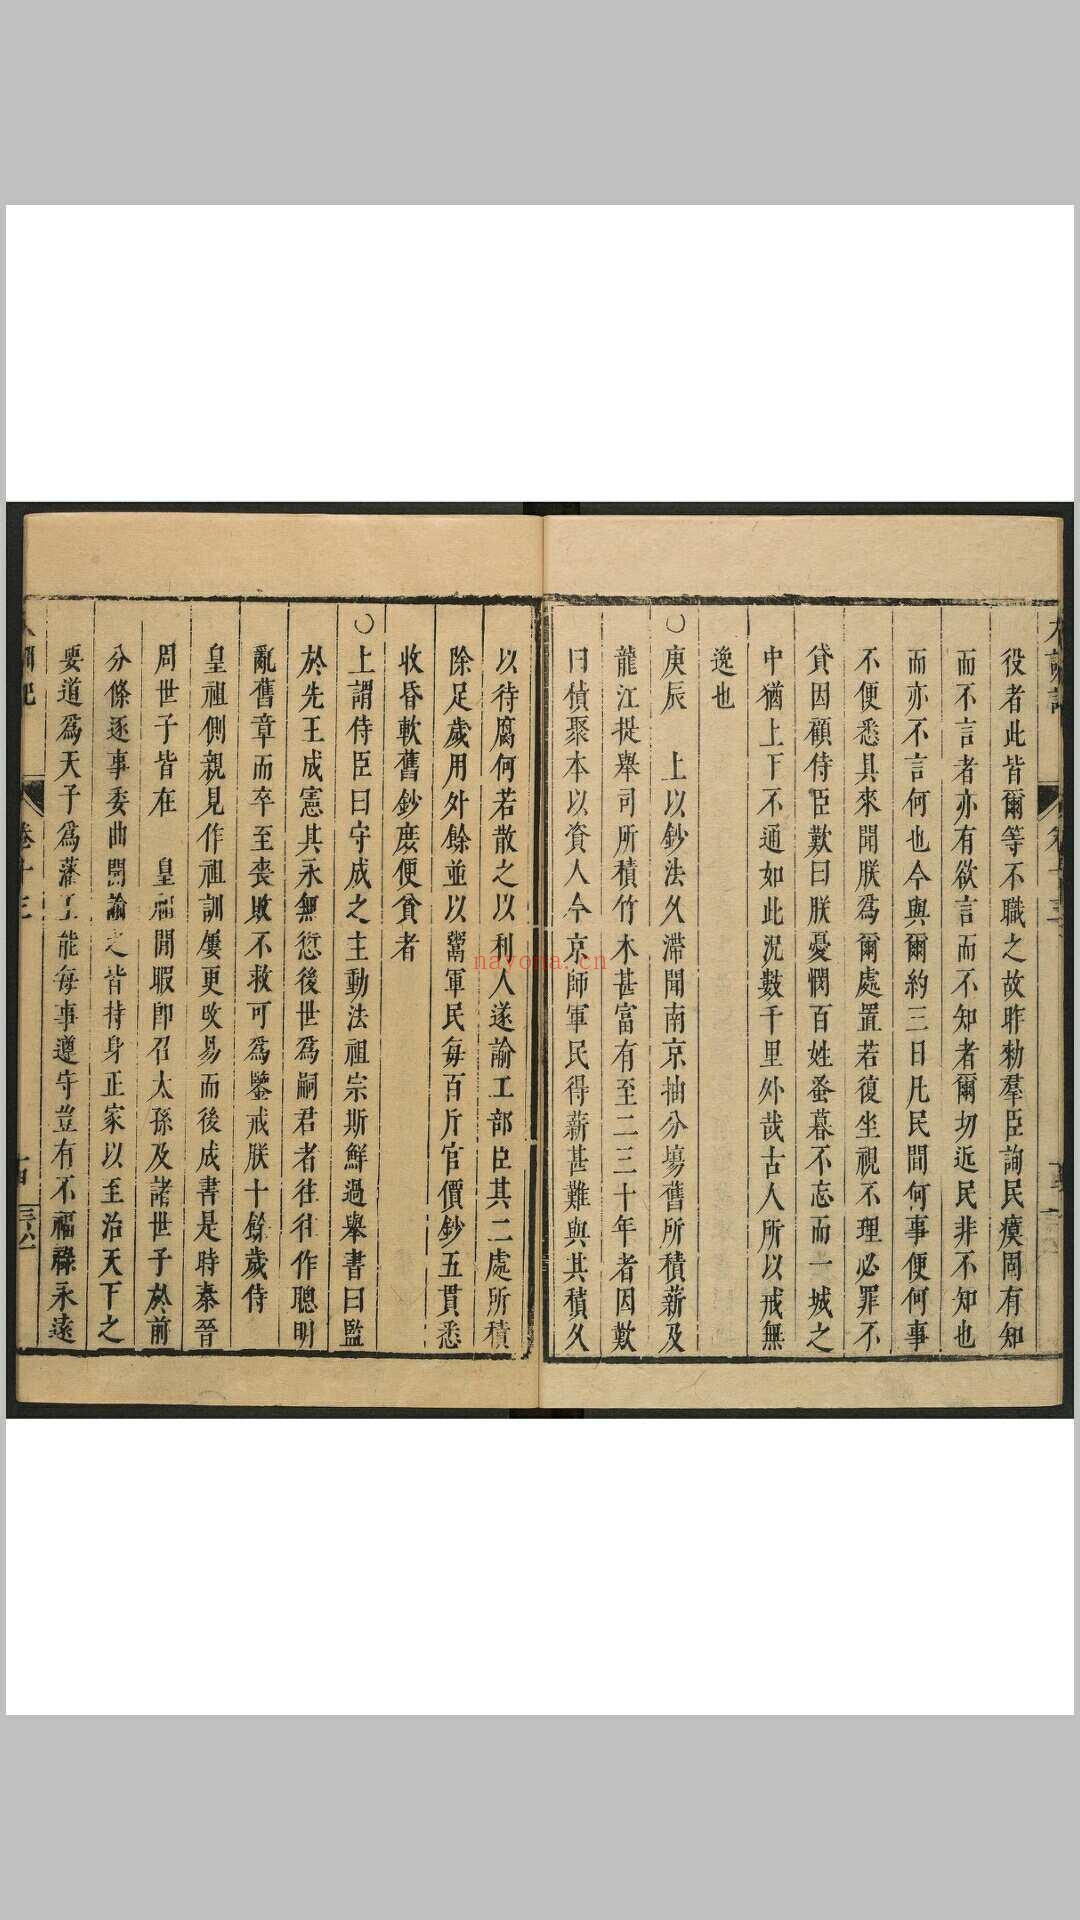 役者此皆爾等不職之故昨勑羣臣詢民瘼固有知
而不言者亦有欲言而不知者爾切近民非不知也
而亦不言何也今與爾約三日凡民間何事便何事
不便悉具來聞朕爲爾處置若復坐視不理必罪不
貸因顧侍臣歎曰朕憂憫百姓蚤暮不忘而一城之
中猶上下不通如此況數千里外哉古人所以戒無
逸也
○庚辰 上以鈔法久滯聞南京抽分塲舊所積薪及
龍江提舉司所積竹木甚富有至二三十年者因歎
曰偵聚本以資人今京師軍民得薪甚難與其積久
以待腐何若散之以利人遂諭工部臣其二處所積
除足歲用外餘並以鬻軍民每百斤官價鈔五貫悉
收昏軟舊鈔庶便貧者
○上謂侍臣曰守成之主動法祖宗斯鮮過舉書曰監
於先王成憲其永無愆後世爲嗣君者往往作聰明
亂舊章而卒至喪敗不救可爲鑒戒朕十餘歲侍
皇祖側親見作祖訓屢更改易而後成書是時秦晉
周世子皆在 皇祖閒暇卽召太孫及諸世子於前
分條逐事委曲開諭之皆持身正家以至治天下之
要道爲天子爲藩王能每事遵守豈有不福祿永遠
卷十三
nayona.cn